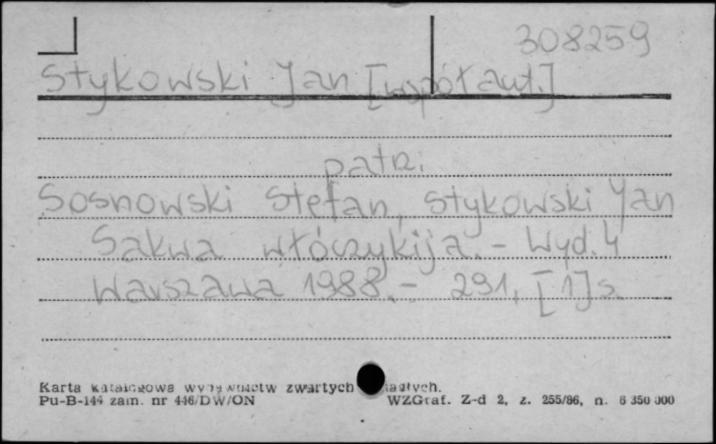 308259
Stykowski Jan [współaut.]
patrz:
Sosnowski Stefan, Stykowski Jan
Sakwa włóczykija. - Wyd. 4
Warszawa 1988. - 291, [1] s.
Karta katalogowa wydawnictw zwartych
Pu-B-144 zam. nr 446/DW/ON WZGraf. Z-d 2, z. 255/86, n. 6 350 000